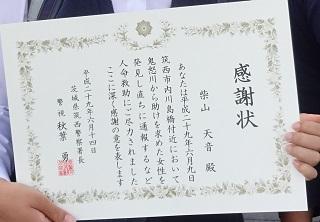 感謝状
柴山 天音 殿
あなたは平成二十九年六月九日
筑西市内川島橋付近において
鬼怒川から助けを求めた女性を
発見し直ちに通報するなど
人命救助にご尽力されました
ここに深く感謝の意を表します
平成二十九年六月十四日
茨城県筑西警察署長
警視 秋葉 勇